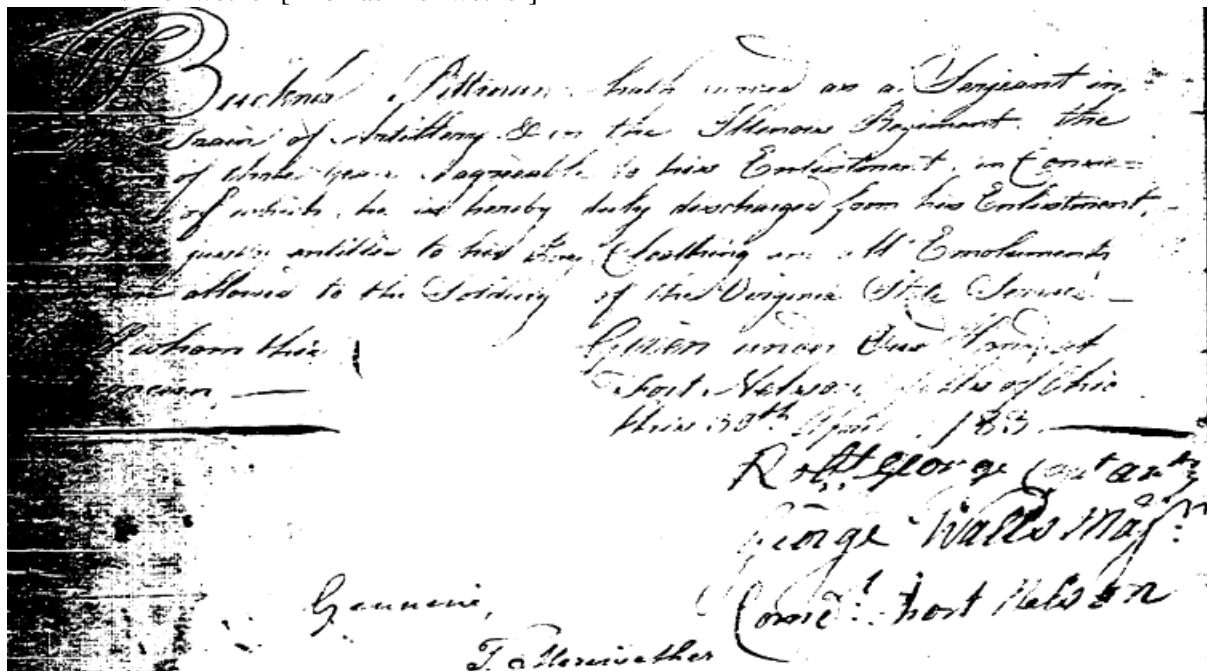 Buckner Pittman hath served as a Serjeant in
Train of Artillery & in the Illinois Regiment the
of three years agreeable to his Enlistment, in Conse=
of which he is hereby duly discharged from his Enlistment,
justly entitled to his Pay Cloathing and all Emoluments
allowed to the Soldiery of the Virginia State Service —
whom this Given under Our Hands at
concern — Fort Nelson Falls of Ohio
this 30th April 1783
Robt. George Capt Arty
George Walls Majr.
Comd. Fort Nelson
Genuine,
T. Meriwether